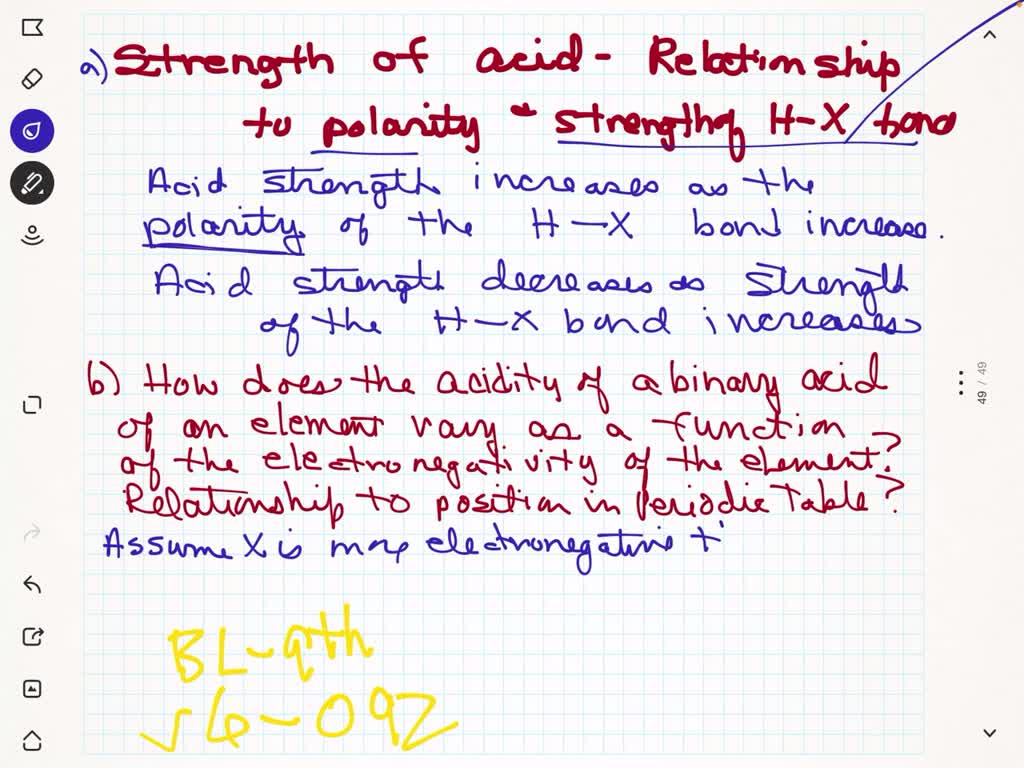 a) Strength of acid - Relationship
to polarity + strength of H-X bond
Acid strength increases as the
polarity of the H-X bond increase.
Acid strength decreases as strength
of the H-X bond increases
b) How does the acidity of a binary acid
of an element vary as a function
of the electronegativity of the element?
Relationship to position in Periodic Table?
Assume X is more electronegative t
BL-9th
16-092
49 / 49